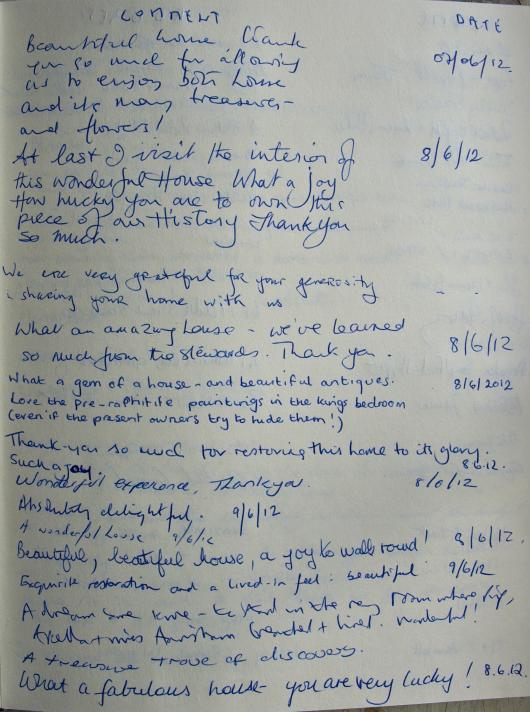 COMMENT DATE
Beautiful home Thank
you so much for allowing 07/06/12.
us to enjoy both house
and its many treasures -
and flowers!
At last I visit the interior of 8/6/12
this wonderful House What a joy
How lucky you are to own this
piece of our History Thankyou
so much.
We are very grateful for your generosity
in sharing your home with us " "
What an amazing house - we've learned
so much from the stewards. Thank you. 8/6/12
What a gem of a house - and beautiful antiques. 8/6/2012
Love the Pre-raphitife paintings in the kings bedroom
(even if the present owners try to hide them!)
Thank-you so much for restoring this home to its glory.
Such a joy. 8.6.12.
Wonderful experience, Thankyou. 8/6/12
Absolutely delightful. 9/6/12
A wonderful house 9/6/12
Beautiful, beautiful house, a joy to walk round! 9/6/12.
Exquisite restoration and a lived-in feel: beautiful 9/6/12
A dream come true - to stand in the very room where
+ lived. Wonderful!
A treasure trove of discovery.
What a fabulous house - you are very lucky! 8.6.12.